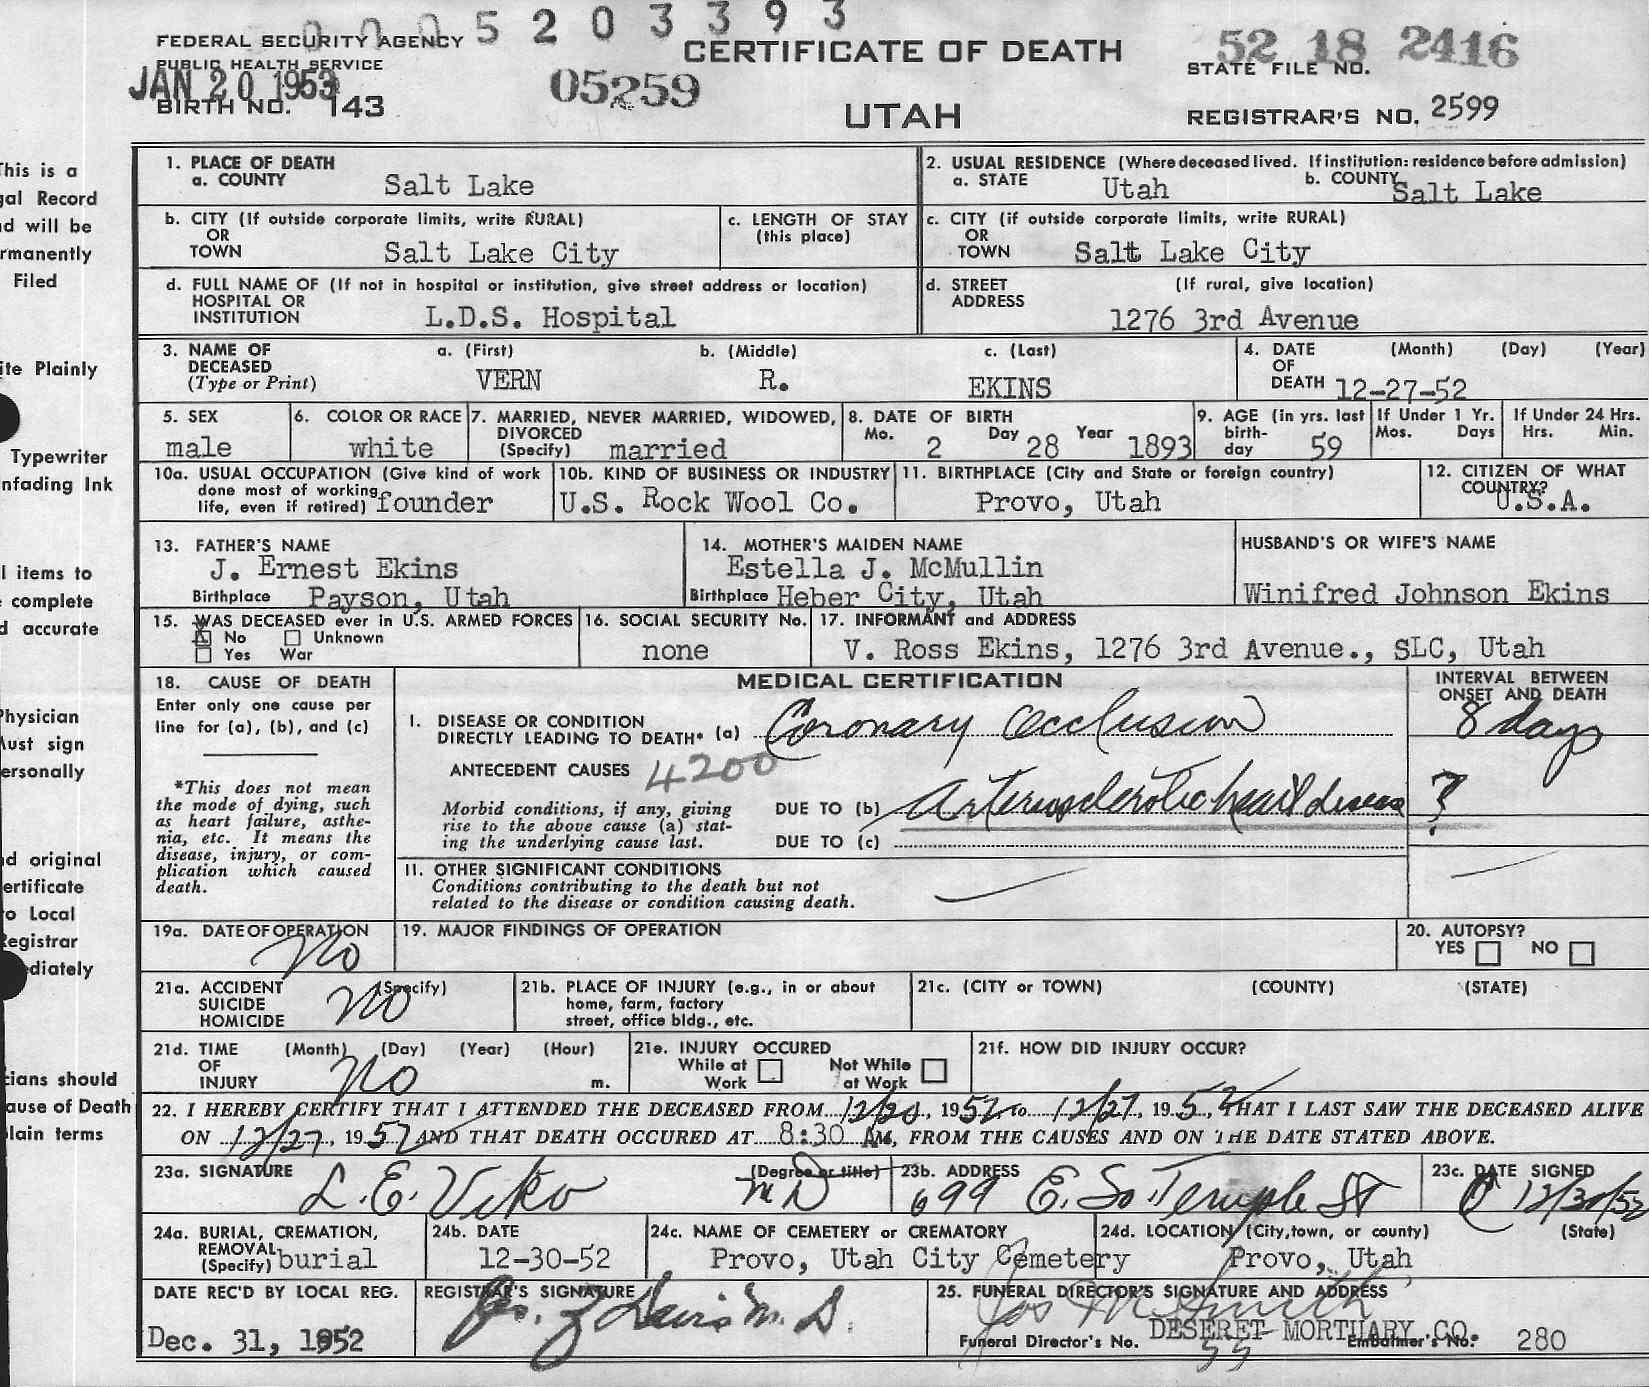 0005203393
FEDERAL SECURITY AGENCY
PUBLIC HEALTH SERVICE
JAN 20 1953
BIRTH NO. 143
05259
CERTIFICATE OF DEATH
UTAH
52 18 2416
STATE FILE NO.
REGISTRAR'S NO. 2599
This is a
gal Record
nd will be
rmanently
Filed
ite Plainly
Typewriter
nfading Ink
l items to
complete
d accurate
Physician
Must sign
ersonally
nd original
ertificate
o Local
Registrar
diately
cians should
ause of Death
lain terms
1. PLACE OF DEATH
a. COUNTY Salt Lake
2. USUAL RESIDENCE (Where deceased lived. If institution: residence before admission)
a. STATE Utah b. COUNTY Salt Lake
b. CITY (If outside corporate limits, write RURAL)
OR
TOWN Salt Lake City
c. LENGTH OF STAY
(this place)
c. CITY (if outside corporate limits, write RURAL)
OR
TOWN Salt Lake City
d. FULL NAME OF (If not in hospital or institution, give street address or location)
HOSPITAL OR
INSTITUTION L.D.S. Hospital
d. STREET (If rural, give location)
ADDRESS 1276 3rd Avenue
3. NAME OF DECEASED
(Type or Print)
a. (First) b. (Middle) c. (Last)
VERN R. EKINS
4. DATE (Month) (Day) (Year)
OF
DEATH 12-27-52
5. SEX
male
6. COLOR OR RACE
white
7. MARRIED, NEVER MARRIED, WIDOWED,
DIVORCED
(Specify) married
8. DATE OF BIRTH
Mo. 2 Day 28 Year 1893
9. AGE (in yrs. last
birth-
day 59
If Under 1 Yr.
Mos. Days
If Under 24 Hrs.
Hrs. Min.
10a. USUAL OCCUPATION (Give kind of work
done most of working
life, even if retired) founder
10b. KIND OF BUSINESS OR INDUSTRY
U.S. Rock Wool Co.
11. BIRTHPLACE (City and State or foreign country)
Provo, Utah
12. CITIZEN OF WHAT
COUNTRY?
U.S.A.
13. FATHER'S NAME
J. Ernest Ekins
Birthplace Payson, Utah
14. MOTHER'S MAIDEN NAME
Estella J. McMullin
Birthplace Heber City, Utah
HUSBAND'S OR WIFE'S NAME
Winifred Johnson Ekins
15. WAS DECEASED ever in U.S. ARMED FORCES
No Unknown
Yes War
16. SOCIAL SECURITY No.
none
17. INFORMANT and ADDRESS
V. Ross Ekins, 1276 3rd Avenue., SLC, Utah
18. CAUSE OF DEATH
Enter only one cause per
line for (a), (b), and (c)
*This does not mean
the mode of dying, such
as heart failure, asthe-
nia, etc. It means the
disease, injury, or com-
plication which caused
death.
MEDICAL CERTIFICATION
INTERVAL BETWEEN
ONSET AND DEATH
I. DISEASE OR CONDITION
DIRECTLY LEADING TO DEATH* (a) Coronary Occlusion 8 days
ANTECEDENT CAUSES 4200
Morbid conditions, if any, giving
rise to the above cause (a) stat-
ing the underlying cause last.
DUE TO (b) Arteriosclerotic heart disease ?
DUE TO (c)
11. OTHER SIGNIFICANT CONDITIONS
Conditions contributing to the death but not
related to the disease or condition causing death.
19a. DATE OF OPERATION
No
19. MAJOR FINDINGS OF OPERATION
20. AUTOPSY?
YES NO
21a. ACCIDENT (Specify)
SUICIDE
HOMICIDE No
21b. PLACE OF INJURY (e.g., in or about
home, farm, factory
street, office bldg., etc.
21c. (CITY or TOWN) (COUNTY) (STATE)
21d. TIME (Month) (Day) (Year) (Hour)
OF
INJURY No m.
21e. INJURY OCCURED
While at Work Not While at Work
21f. HOW DID INJURY OCCUR?
22. I HEREBY CERTIFY THAT I ATTENDED THE DECEASED FROM 12/20, 1952 to 12/27, 1952, THAT I LAST SAW THE DECEASED ALIVE
ON 12/27, 1952 AND THAT DEATH OCCURED AT 8:30 AM, FROM THE CAUSES AND ON THE DATE STATED ABOVE.
23a. SIGNATURE (Degree or title)
L.E. Viko MD
23b. ADDRESS
699 E. So. Temple St
23c. DATE SIGNED
12/30/52
24a. BURIAL, CREMATION,
REMOVAL
(Specify) burial
24b. DATE
12-30-52
24c. NAME OF CEMETERY or CREMATORY
Provo, Utah City Cemetery
24d. LOCATION (City, town, or county) (State)
Provo, Utah
DATE REC'D BY LOCAL REG.
Dec. 31, 1952
REGISTRAR'S SIGNATURE
Davis M.D.
25. FUNERAL DIRECTOR'S SIGNATURE AND ADDRESS
Jos M Smith
DESERET MORTUARY CO.
Funeral Director's No. 55 Embalmer's No. 280